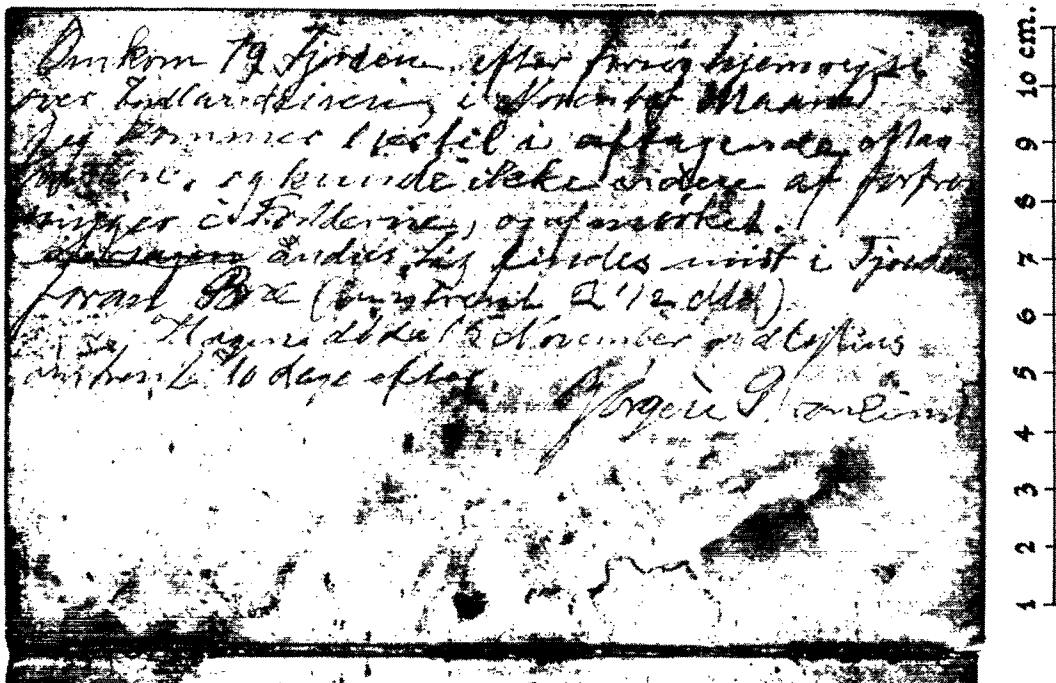 Omkom 79 Fjorden efter Forsøg hjemrejse
over Indlandsisen, i November Maaned
Jeg kommer hertil i aftagende Maane
og kunde ikke videre af Forfrosninger
i Fødderne, og af mørket.
andres Lig findes midt i Fjorden
foran Bræ (omtrent 2 1/2 Mil)
Hagen døde 15 November og Mylius
omtrent 10 dage efter
Jørgen Brønlund
10 cm.
9
8
7
6
5
4
3
2
1